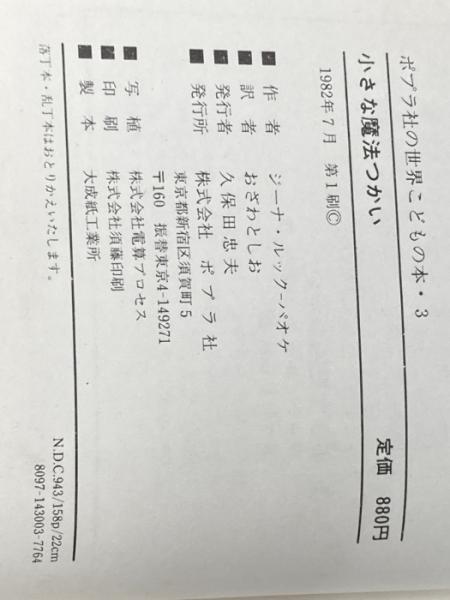 ポプラ社の世界こどもの本・3
小さな魔法つかい 定価 880円
1982年7月 第1刷©
■作者 ジーナ・ルック-パオケ
■訳者 おざわとしお
■発行者 久保田忠夫
■発行所 株式会社 ポプラ社
東京都新宿区須賀町5
〒160 振替東京4-149271
■写植 株式会社電算プロセス
■印刷 株式会社須藤印刷
■製本 大成紙工業所
落丁本・乱丁本はおとりかえいたします。
N.D.C.943/158p/22cm
8097-143003-7764